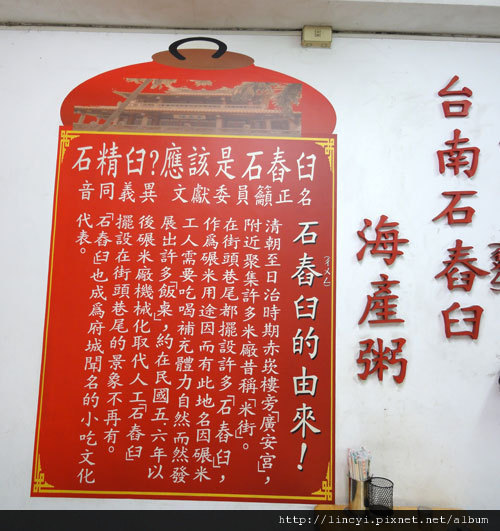 石精臼?應該是石舂臼
音同義異 文獻委員籲正名
石舂臼的由來!
清朝至日治時期赤崁樓旁廣安宮,
附近聚集許多米廠昔稱「米街」。
在街頭巷尾都擺設許多「石舂臼」,
作為碾米用途因而有此地名因碾米
工人需要吃喝補充體力自然而然發
展出許多「飯桌」,約在民國五、六年以
後碾米廠機械化取代人工「石舂臼」
擺設在街頭巷尾的景象不再有。
「石舂臼」也成為府城聞名的小吃文化
代表。
台南石舂臼
海產粥
http://lincyi.pixnet.net/album